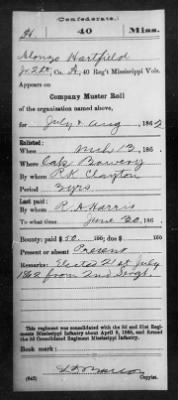 (Confederate.)
H 40 Miss.
Alonzo Hartfield
Jr 2 Lt, Co. A, 40 Reg't Mississippi Vols.
Appears on
Company Muster Roll
of the organization named above,
for July & Aug, 1862
Enlisted:
When Mch 13, 186
Where Oak Bowery
By whom P.K. Clayton
Period 3 yrs
Last paid:
By whom R.A. Harris
To what time June 30, 186
Bounty: paid $50 100; due $ 100
Present or absent Present
Remarks: Elected 21st July
1862 from 2nd Sergt.
This regiment was consolidated with the 3d and 31st Regiments Mississippi Infantry about April 9, 1865, and formed the 3d Consolidated Regiment Mississippi Infantry.
Book mark:
(642) Copyist.